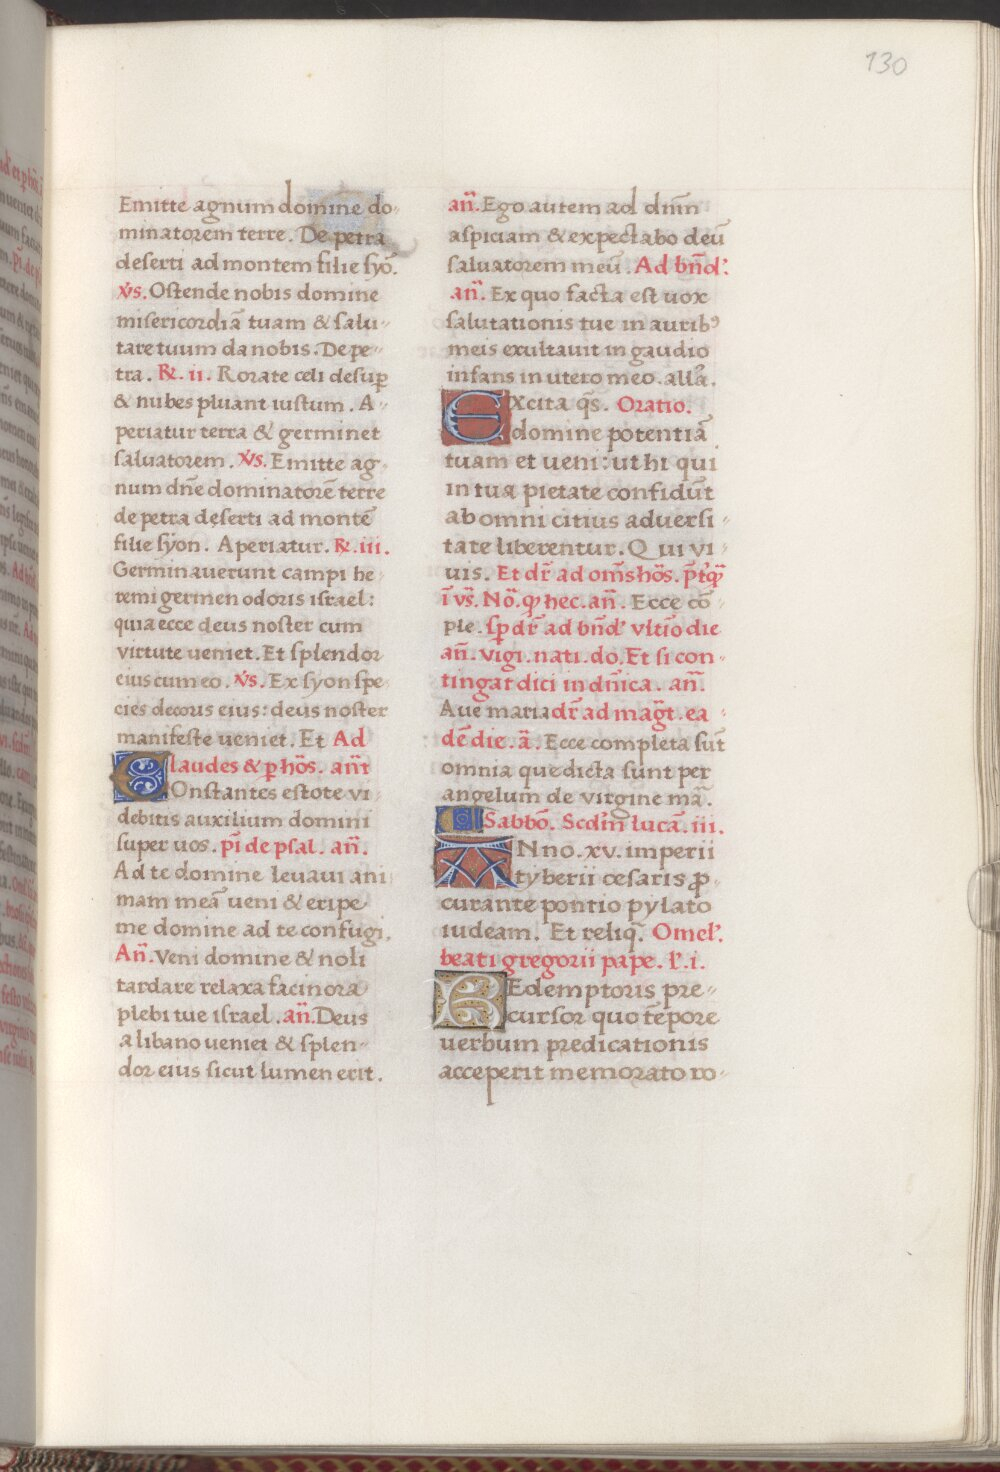 130
Emitte agnum domine do-
minatorem terre. De petra
deserti ad montem filie syõ.
v̇s. Ostende nobis domine
misericordiã tuam & salu-
tare tuum da nobis. De pe-
tra. ℟. ii. Rorate celi desuꝑ
& nubes pluant iustum. A-
periatur terra & germinet
saluatorem. v̇s. Emitte ag-
num dñe dominatorẽ terre
de petra deserti ad montẽ
filie syon. Aperiatur. ℟. iii.
Germinauerunt campi he-
remi germen odoris israel:
quia ecce deus noster cum
virtute ueniet. Et splendor
eius cum eo. v̇s. Ex syon spe-
cies decoris eius: deus noster
manifeste ueniet. Et Ad
laudes & ꝑ hõs. añt
Constantes estote vi-
debitis auxilium domini
super uos. pĩ de psal. añ.
Ad te domine leuaui ani-
mam meã ueni & eripe
me domine ad te confugi.
Añ. Veni domine & noli
tardare relaxa facinora
plebi tue israel. añ. Deus
a libano ueniet & splen-
dor eius sicut lumen erit.
añ. Ego autem ad dñm
aspiciam & expectabo deũ
saluatorem meũ. Ad bñd':
añ. Ex quo facta est uox
salutationis tue in auribꝰ
meis exultauit in gaudio
infans in utero meo. allã.
EXcita q̃s. Oratio.
domine potentiã
tuam et ueni: ut hi qui
in tua pietate confidũt
ab omni citius aduersi-
tate liberentur. Qui vi-
uis. Et dr̃ ad om̃s hõs. p̃tq̃
ĩ vs̃. Nõ. ꝙ hec. añ. Ecce cõ-
ple. sꝑ dr̃ ad bñd' vltiõ die
añ. vigi. nati. do. Et si con-
tingat dici in dñica. añ.
Aue maria dr̃ ad mag̃t. ea-
dẽ die. ã. Ecce completa sũt
omnia que dicta sunt per
angelum de virgine mã.
Sabbõ. Scd̃m lucã. iii.
ANno. xv. imperii
tyberii cesaris ꝓ-
curante pontio pylato
iudeam. Et reliq̃. Omel'.
beati gregorii pape. l'. i.
REdemptoris pre-
cursor quo tẽpore
uerbum predicationis
acceperit memorato ro-